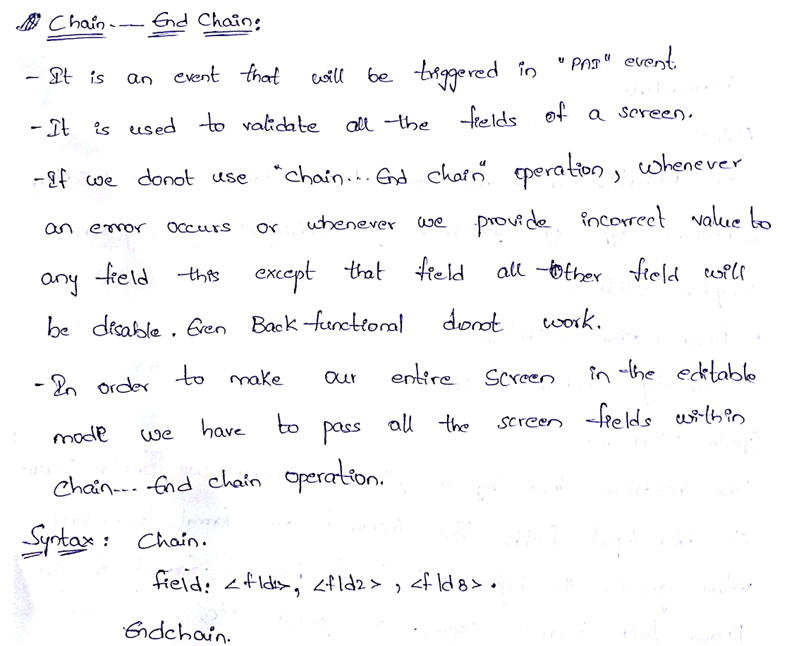 Chain --- End Chain:
- It is an event that will be triggered in "PAI" event
- It is used to validate all the fields of a screen.
- If we donot use "Chain... End chain" operation, whenever
an error occurs or whenever we provide incorrect value to
any field this except that field all other field will
be disable. Even Back functional donot work.
- In order to make our entire Screen in the editable
mode we have to pass all the screen fields within
Chain--- End chain operation.
Syntax: Chain.
field: <fld1>, <fld2>, <fld8>.
Endchain.